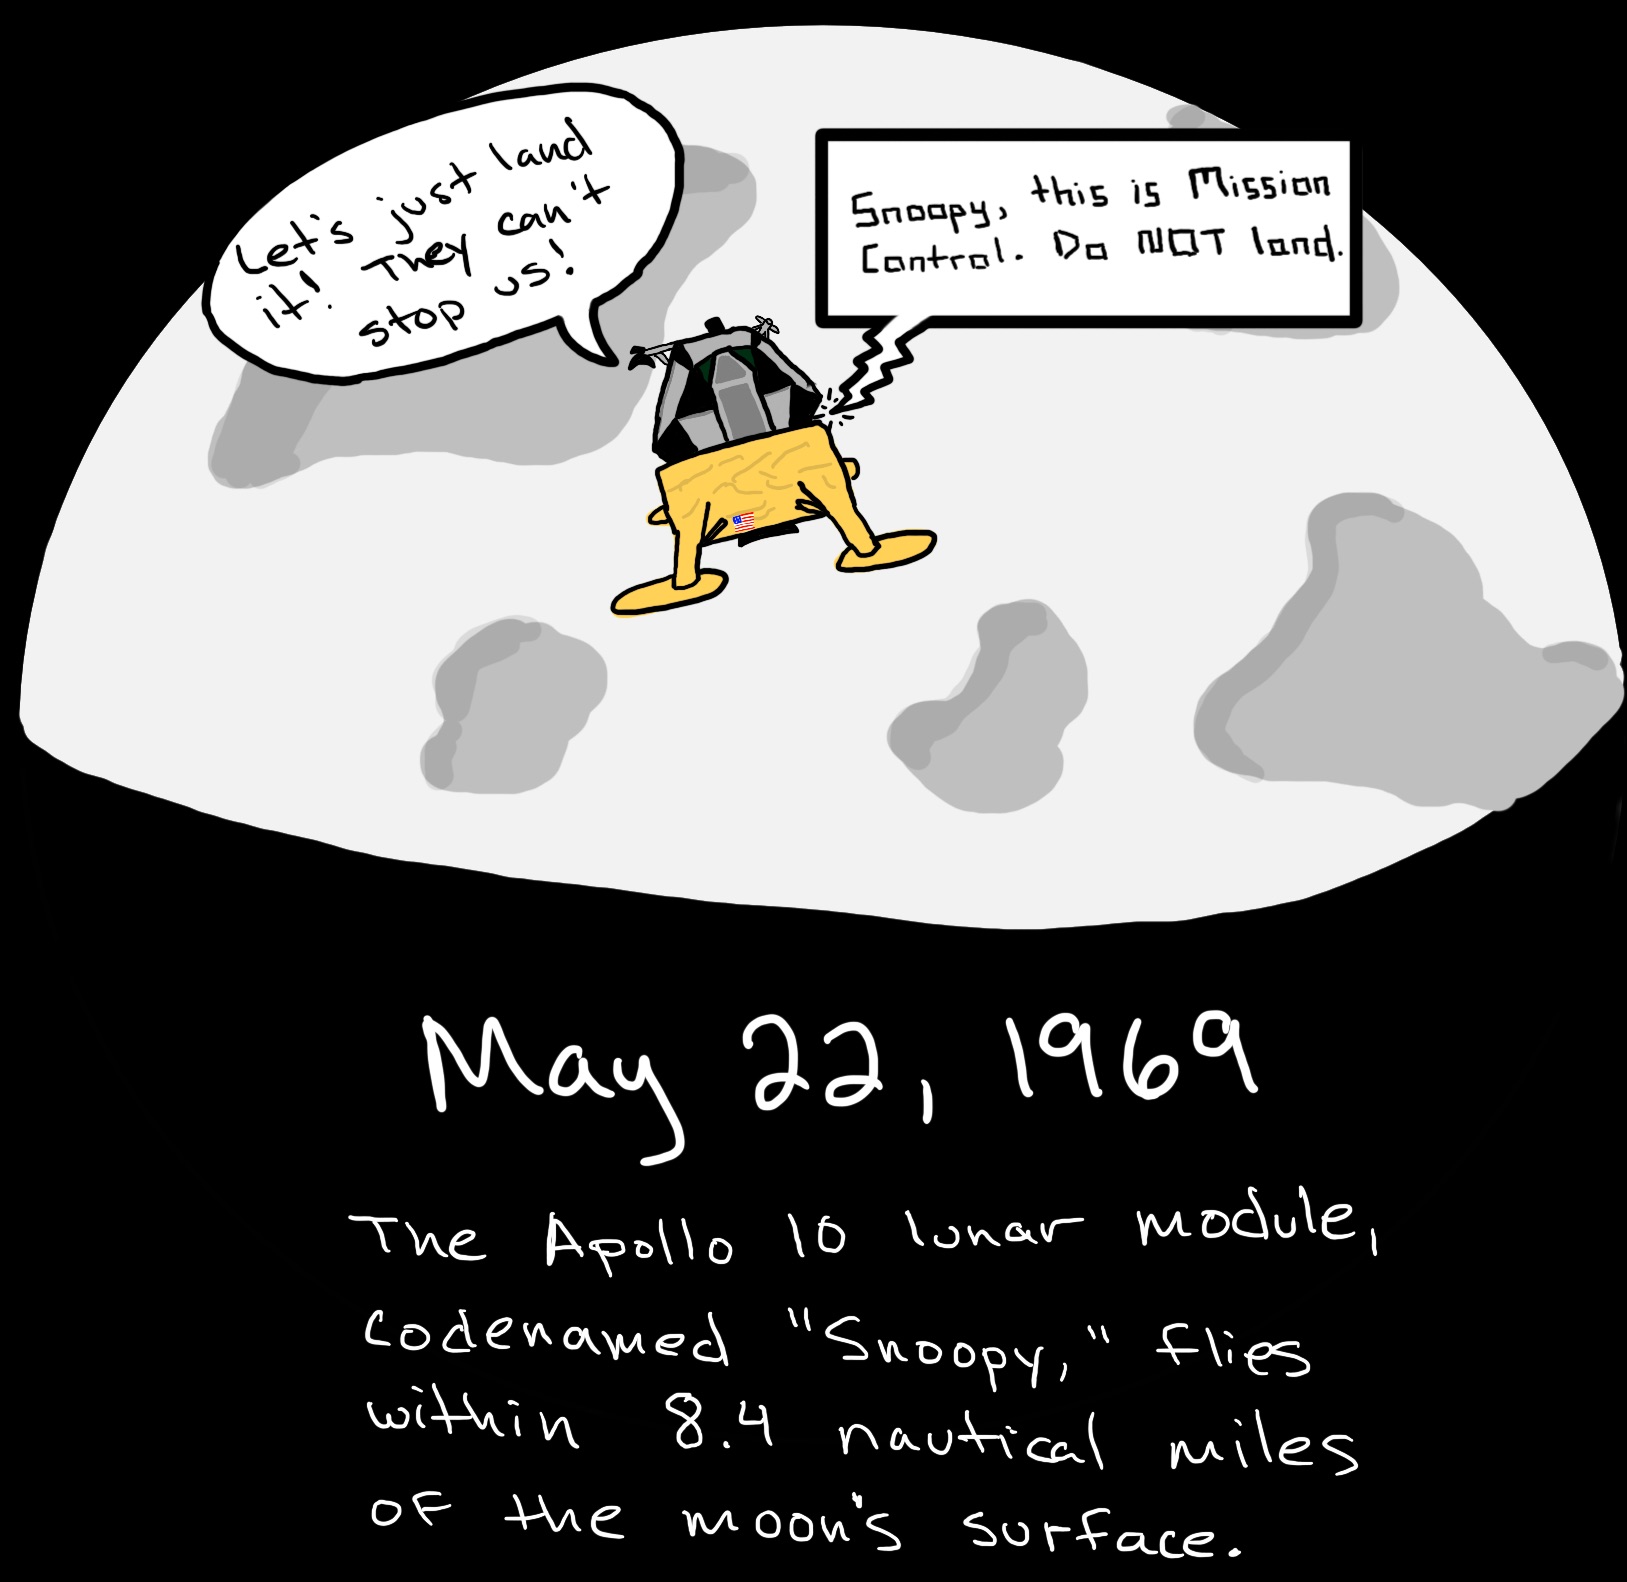 Let's just land
it! They can't
stop us!
Snoopy, this is Mission
Control. Do NOT land.
May 22, 1969
The Apollo 10 lunar module,
codenamed "Snoopy," flies
within 8.4 nautical miles
of the moon's surface.